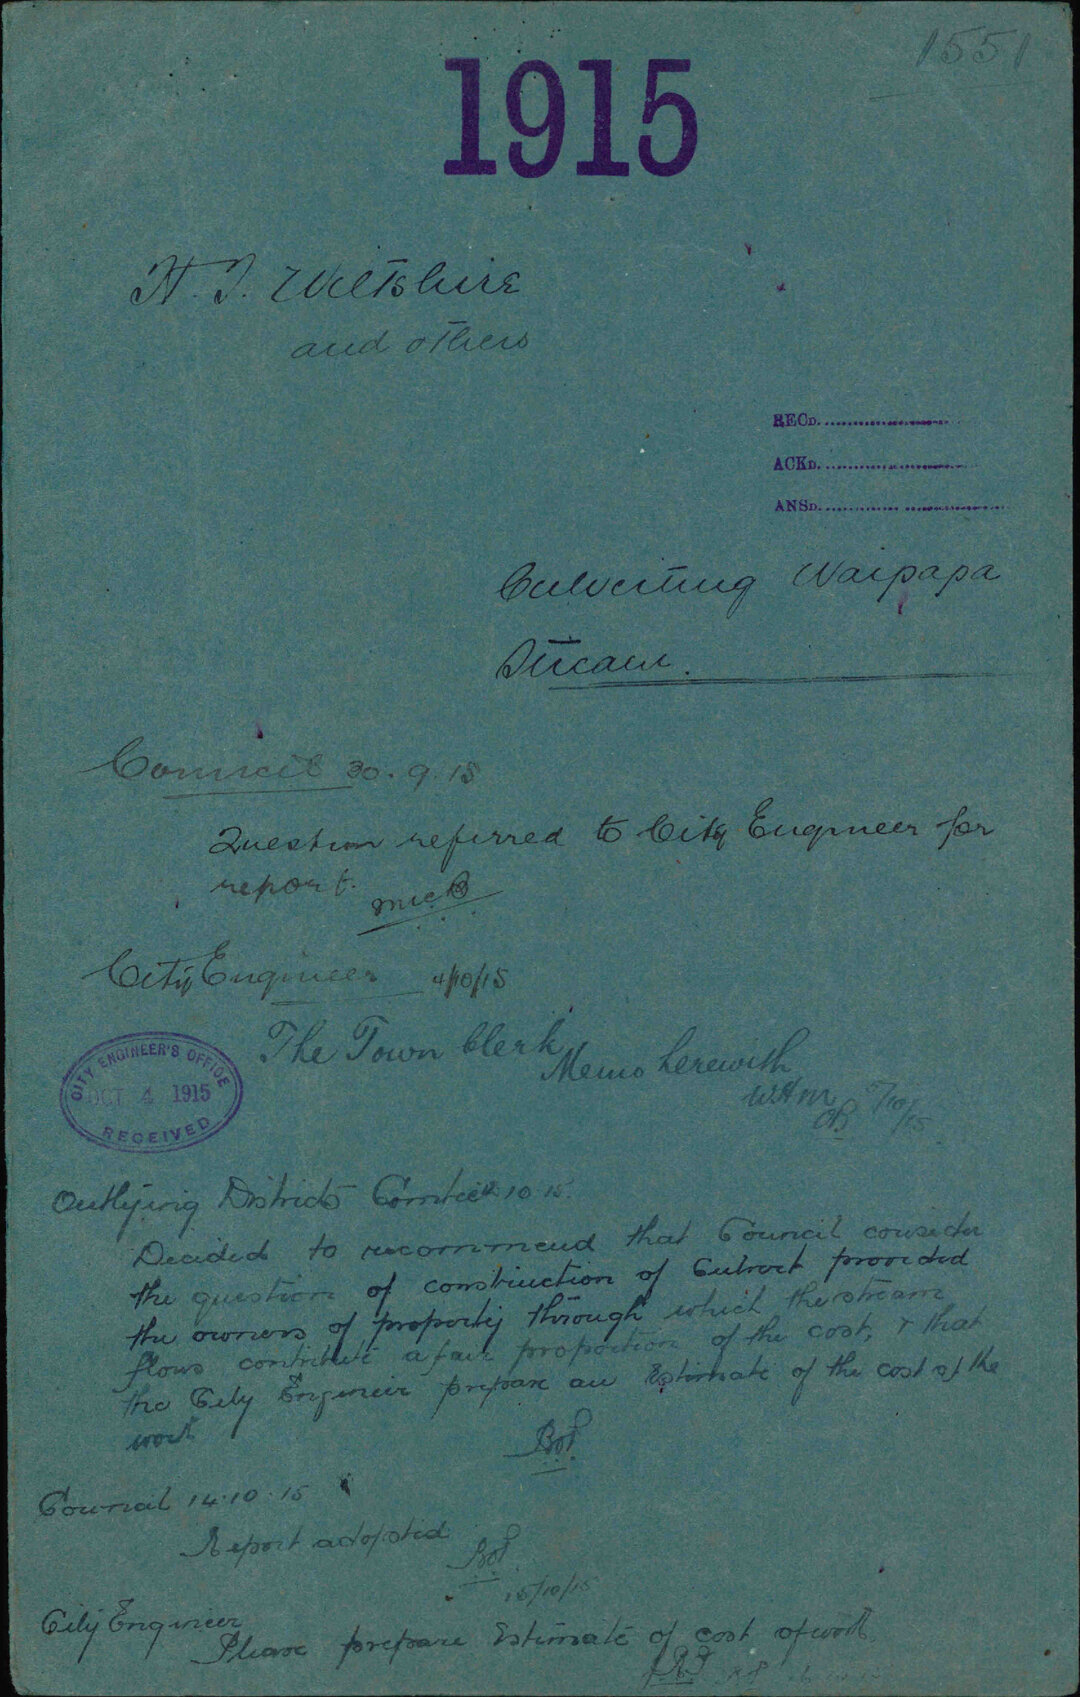 1551
1915
H. T. Wiltshire
and others
RECD.
ACKD.
ANSD.
Culverting Waipapa
Stream.
Council 30.9.15
Question referred to City Engineer for
report.
City Engineer 4/10/15
The Town Clerk,
Memo herewith
WHM 7/10/15
CITY ENGINEER'S OFFICE
OCT 4 1915
RECEIVED
Outlying Districts Comtee 10.15.
Decided to recommend that Council consider
the question of construction of Culvert provided
the owners of property through which the stream
flows contribute a fair proportion of the cost, & that
the City Engineer prepare an Estimate of the cost of the
work
Council 14.10.15
Report adopted
15/10/15
City Engineer
Please prepare Estimate of cost of work.